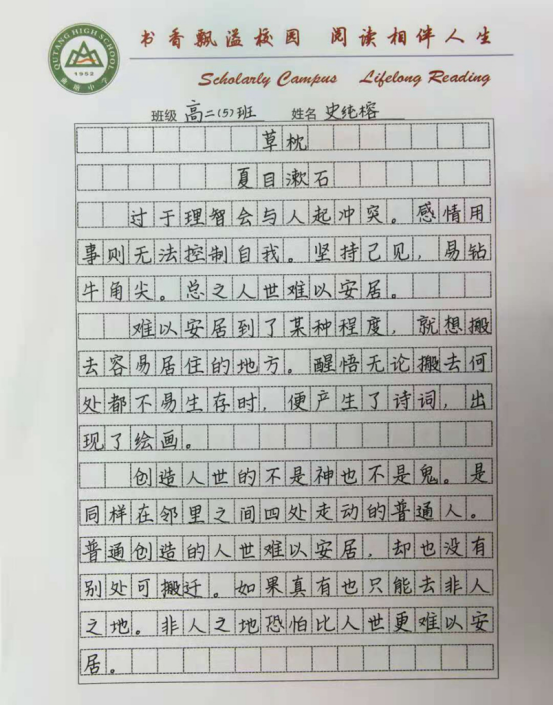 QUTANG HIGH SCHOOL
1952
书香飘溢校园 阅读相伴人生
Scholarly Campus Lifelong Reading
班级 高二(5)班 姓名 史纯榕
草枕
夏目漱石
过于理智会与人起冲突。感情用
事则无法控制自我。坚持己见,易钻
牛角尖。总之人世难以安居。
难以安居到了某种程度,就想搬
去容易居住的地方。醒悟无论搬去何
处都不易生存时,便产生了诗词,出
现了绘画。
创造人世的不是神也不是鬼。是
同样在邻里之间四处走动的普通人。
普通创造的人世难以安居,却也没有
别处可搬迁。如果真有也只能去非人
之地。非人之地恐怕比人世更难以安
居。